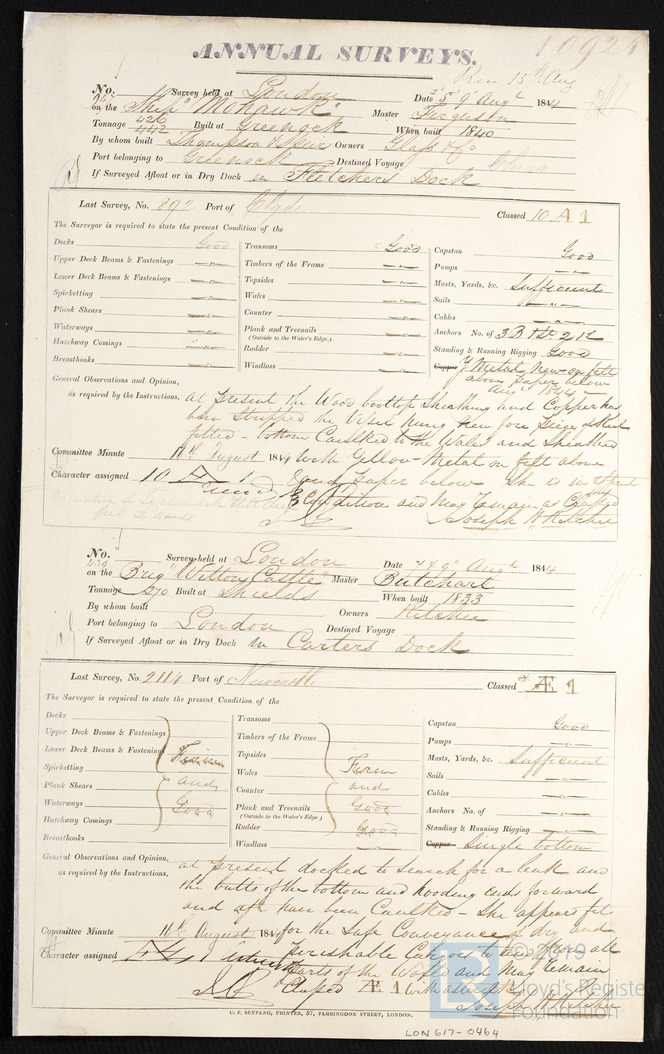 10924
ANNUAL SURVEYS.
Rec 13th Aug
No. Survey held at London Date 5 9 Augt 1844
on the Ship "Mohawk" Master Ferguson
Tonnage 426 442 Built at Greenock When built 1840
By whom built Thompson & Owners
Port belonging to Greenock Destined Voyage China
If Surveyed Afloat or in Dry Dock in Fletchers Dock
Last Survey, No. 892 Port of Clyde Classed 10 A 1
The Surveyor is required to state the present Condition of the
Decks Good
Upper Deck Beams & Fastenings — " —
Lower Deck Beams & Fastenings — " —
Spirketting — " —
Plank Shears — " —
Waterways — " —
Hatchway Comings — " —
Breasthooks — " —
Transoms Good
Timbers of the Frame — " —
Topsides — " —
Wales — " —
Counter — " —
Plank and Treenails — " —
(Outside to the Water's Edge.)
Rudder — " —
Windlass — " —
Capstan Good
Pumps — " —
Masts, Yards, &c. Sufficient
Sails — " —
Cables — " —
Anchors No. of 3 B 1 St. 2 K
Standing & Running Rigging Good
Copper Y Metal New on felt
above paper below
Augt 1844
General Observations and Opinion,
as required by the Instructions,
at present the Wood boottop Sheathing and Copper has
been stripped the Vessel hung New fore
fitted - bottom Caulked to the Wales and Sheathed
Committee Minute 16th August 1844 with Yellow Metal on felt above
Character assigned 10 A 1 and paper below She is in
Condition and May remain as Classed
Joseph H Ritchie
No. Survey held at London Date 7 & 9 Augt 1844
on the Brig "Witton Castle" Master Butchart
Tonnage 270 Built at Shields When built 1833
By whom built Owners Ritchie
Port belonging to London Destined Voyage
If Surveyed Afloat or in Dry Dock in Carters Dock
Last Survey, No. 2114 Port of Newcastle Classed * Æ 1
The Surveyor is required to state the present Condition of the
Decks
Upper Deck Beams & Fastenings
Lower Deck Beams & Fastenings
Spirketting
Plank Shears
Waterways
Hatchway Comings
Breasthooks
Firm
and
Good
Transoms
Timbers of the Frame
Topsides
Wales
Counter
Plank and Treenails
(Outside to the Water's Edge.)
Firm
and
Good
Rudder Good
Windlass — " —
Capstan Good
Pumps — " —
Masts, Yards, &c. Sufficient
Sails — " —
Cables — " —
Anchors No. of — " —
Standing & Running Rigging — " —
Copper Single bottom
General Observations and Opinion,
as required by the Instructions,
at present docked to search for a leak and
the butts of the bottom and hooding ends forward
and aft have been Caulked - She appears fit
Committee Minute 16th August 1844 for the Safe Conveyance of dry and
Character assigned Perishable Cargoes to and from all
Parts of the World and May remain
Classed Æ 1 with
Joseph H Ritchie
C. F. SEYFANG, PRINTER, 57, FARRINGDON STREET, LONDON.
LON 617-0464
© 2019
Lloyd's Register
Foundation